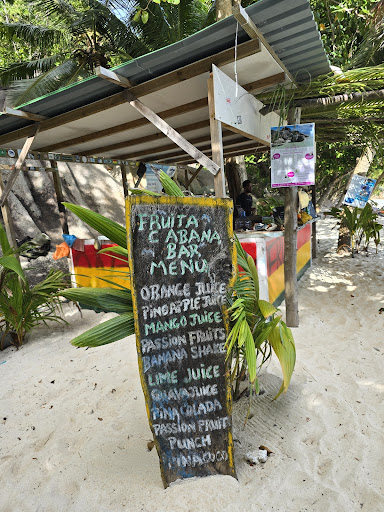 FRUITA
CABANA
BAR
MENU
ORANGE JUICE
PINEAPPLE JUICE
MANGO JUICE
PASSION FRUITS
BANANA SHAKE
LIME JUICE
GUAVA JUICE
PINA COLADA
PASSION FRUIT
PUNCH
PINACOCO